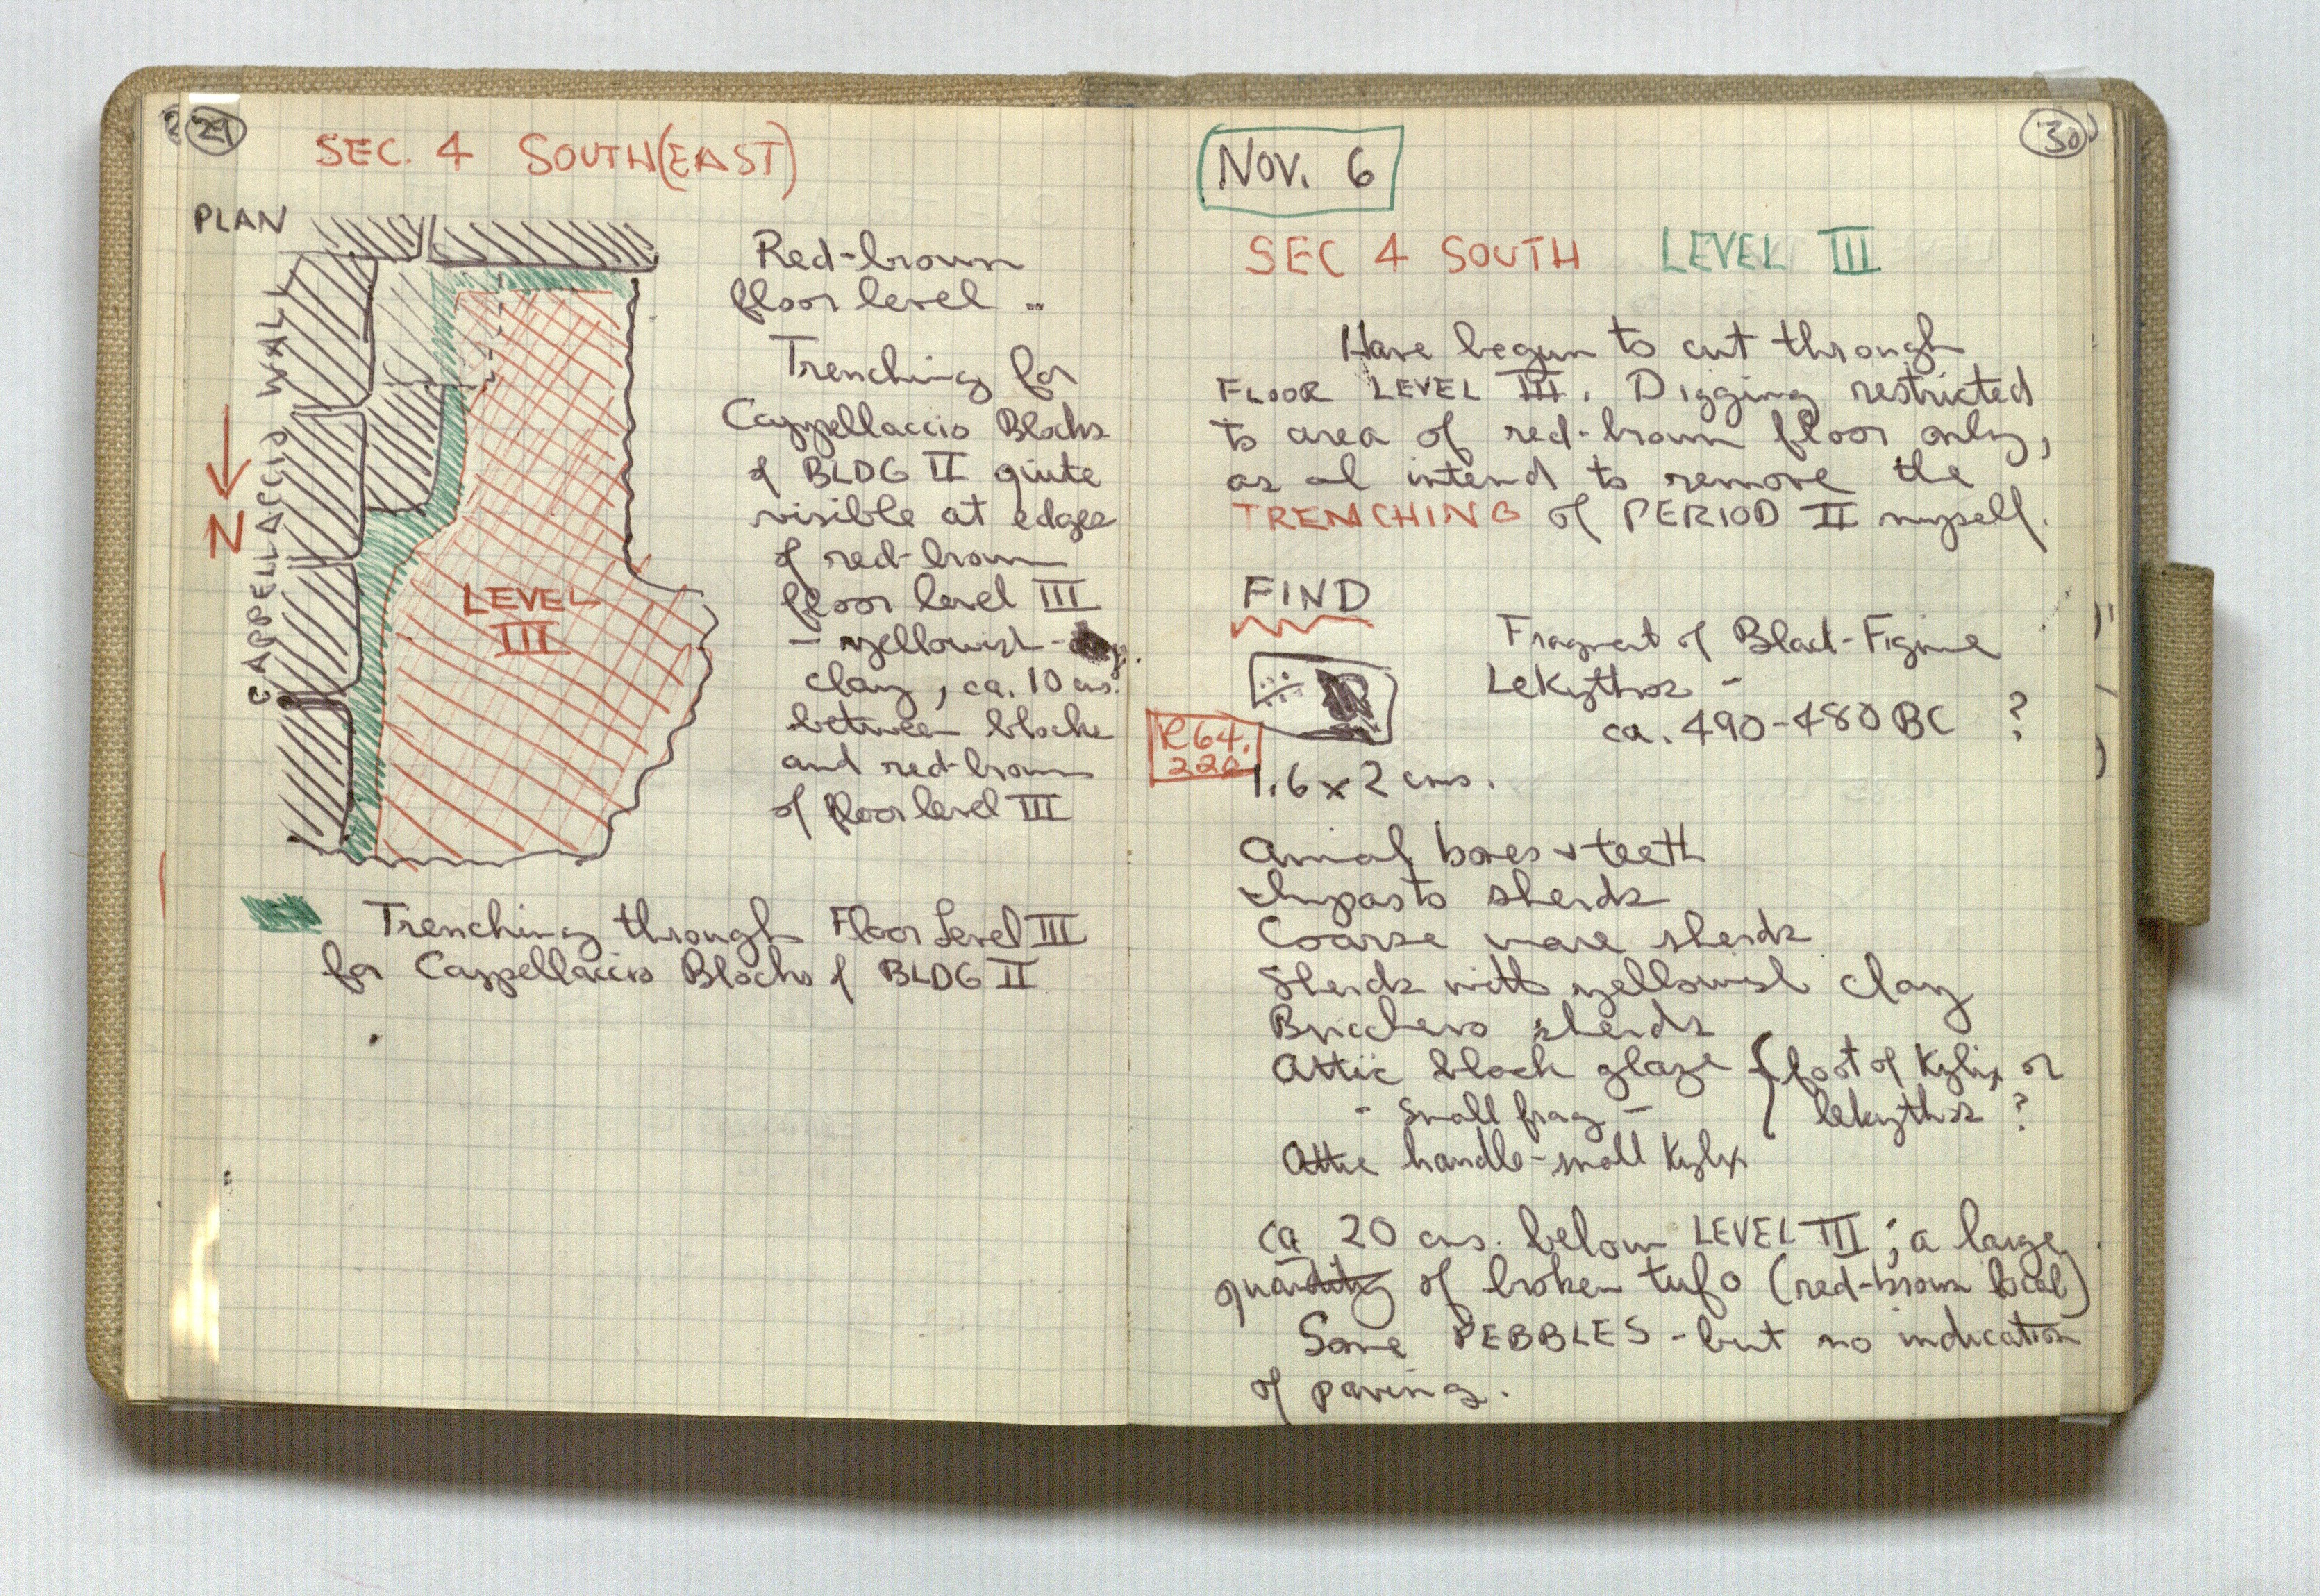 29
SEC. 4 SOUTH(EAST)
PLAN
CAPPELLACCIO WALL
N
LEVEL
III
Red-brown
floor level ..
Trenching for
Cappellaccio Blocks
of BLDG II quite
visible at edges
of red-brown
floor level III
- yellowish -
clay, ca. 10 cms.
between blocks
and red-brown
of floor level III
Trenching through Floor Level III
for Cappellaccio Blocks of BLDG II
30
NOV. 6
SEC 4 SOUTH LEVEL III
Have begun to cut through
FLOOR LEVEL III. Digging restricted
to area of red-brown floor only,
as I intend to remove the
TRENCHING of PERIOD II myself.
FIND
Fragment of Black-Figure
Lekythos -
ca. 490-480 BC ?
R64.
220
1.6 x 2 cms.
Animal bones & teeth
Impasto sherds
Coarse ware sherds
Sherds with yellowish clay
Bucchero sherds
Attic black glaze { foot of Kylix or
- small frag - lekythos ?
Attic handle - small Kylix
ca 20 cms. below LEVEL III; a large
quantity of broken tufo (red-brown local)
Some PEBBLES - but no indication
of paving.